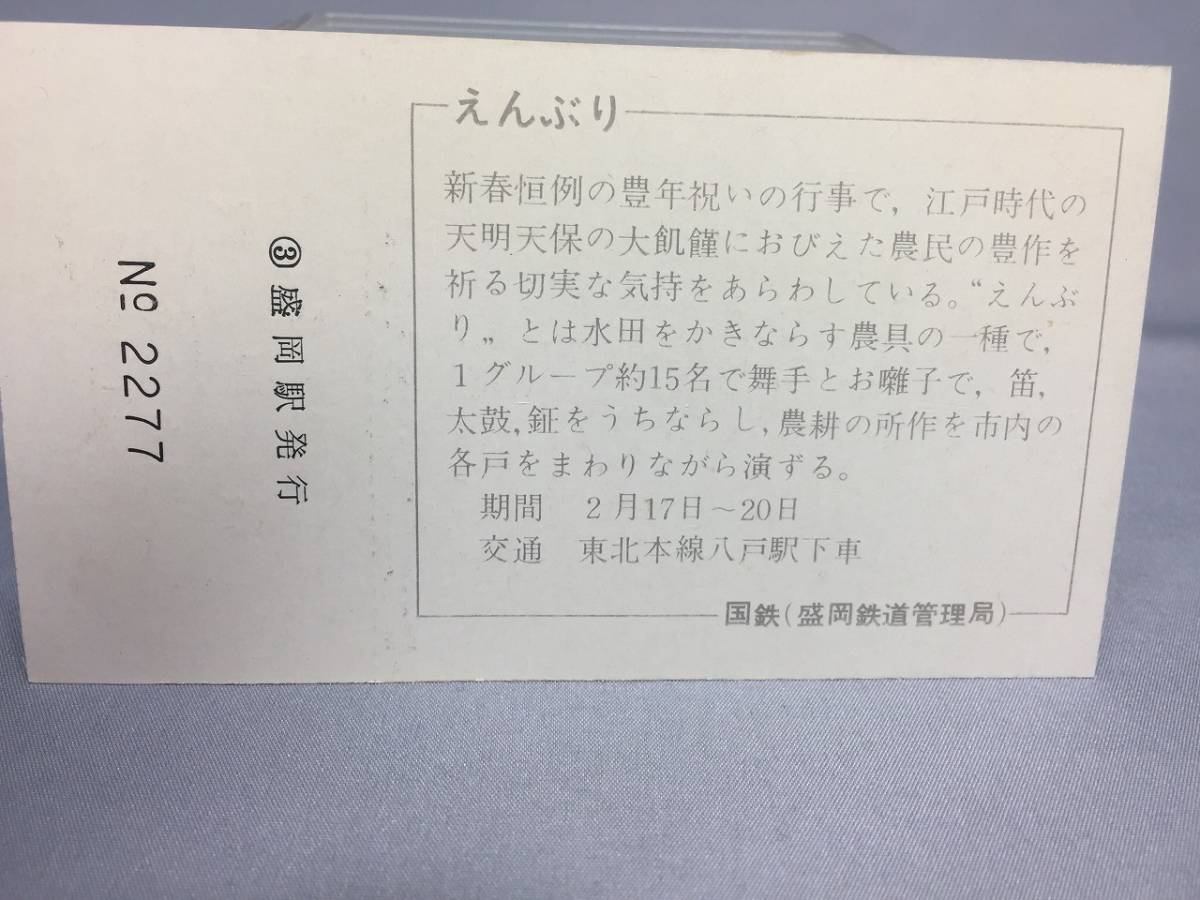 えんぶり
新春恒例の豊年祝いの行事で，江戸時代の
天明天保の大飢饉におびえた農民の豊作を
祈る切実な気持をあらわしている。“えんぶ
り„とは水田をかきならす農具の一種で，
1グループ約15名で舞手とお囃子で，笛，
太鼓，鉦をうちならし，農耕の所作を市内の
各戸をまわりながら演ずる。
期間　2月17日～20日
交通　東北本線八戸駅下車
国鉄(盛岡鉄道管理局)
③盛岡駅発行
№ 2277